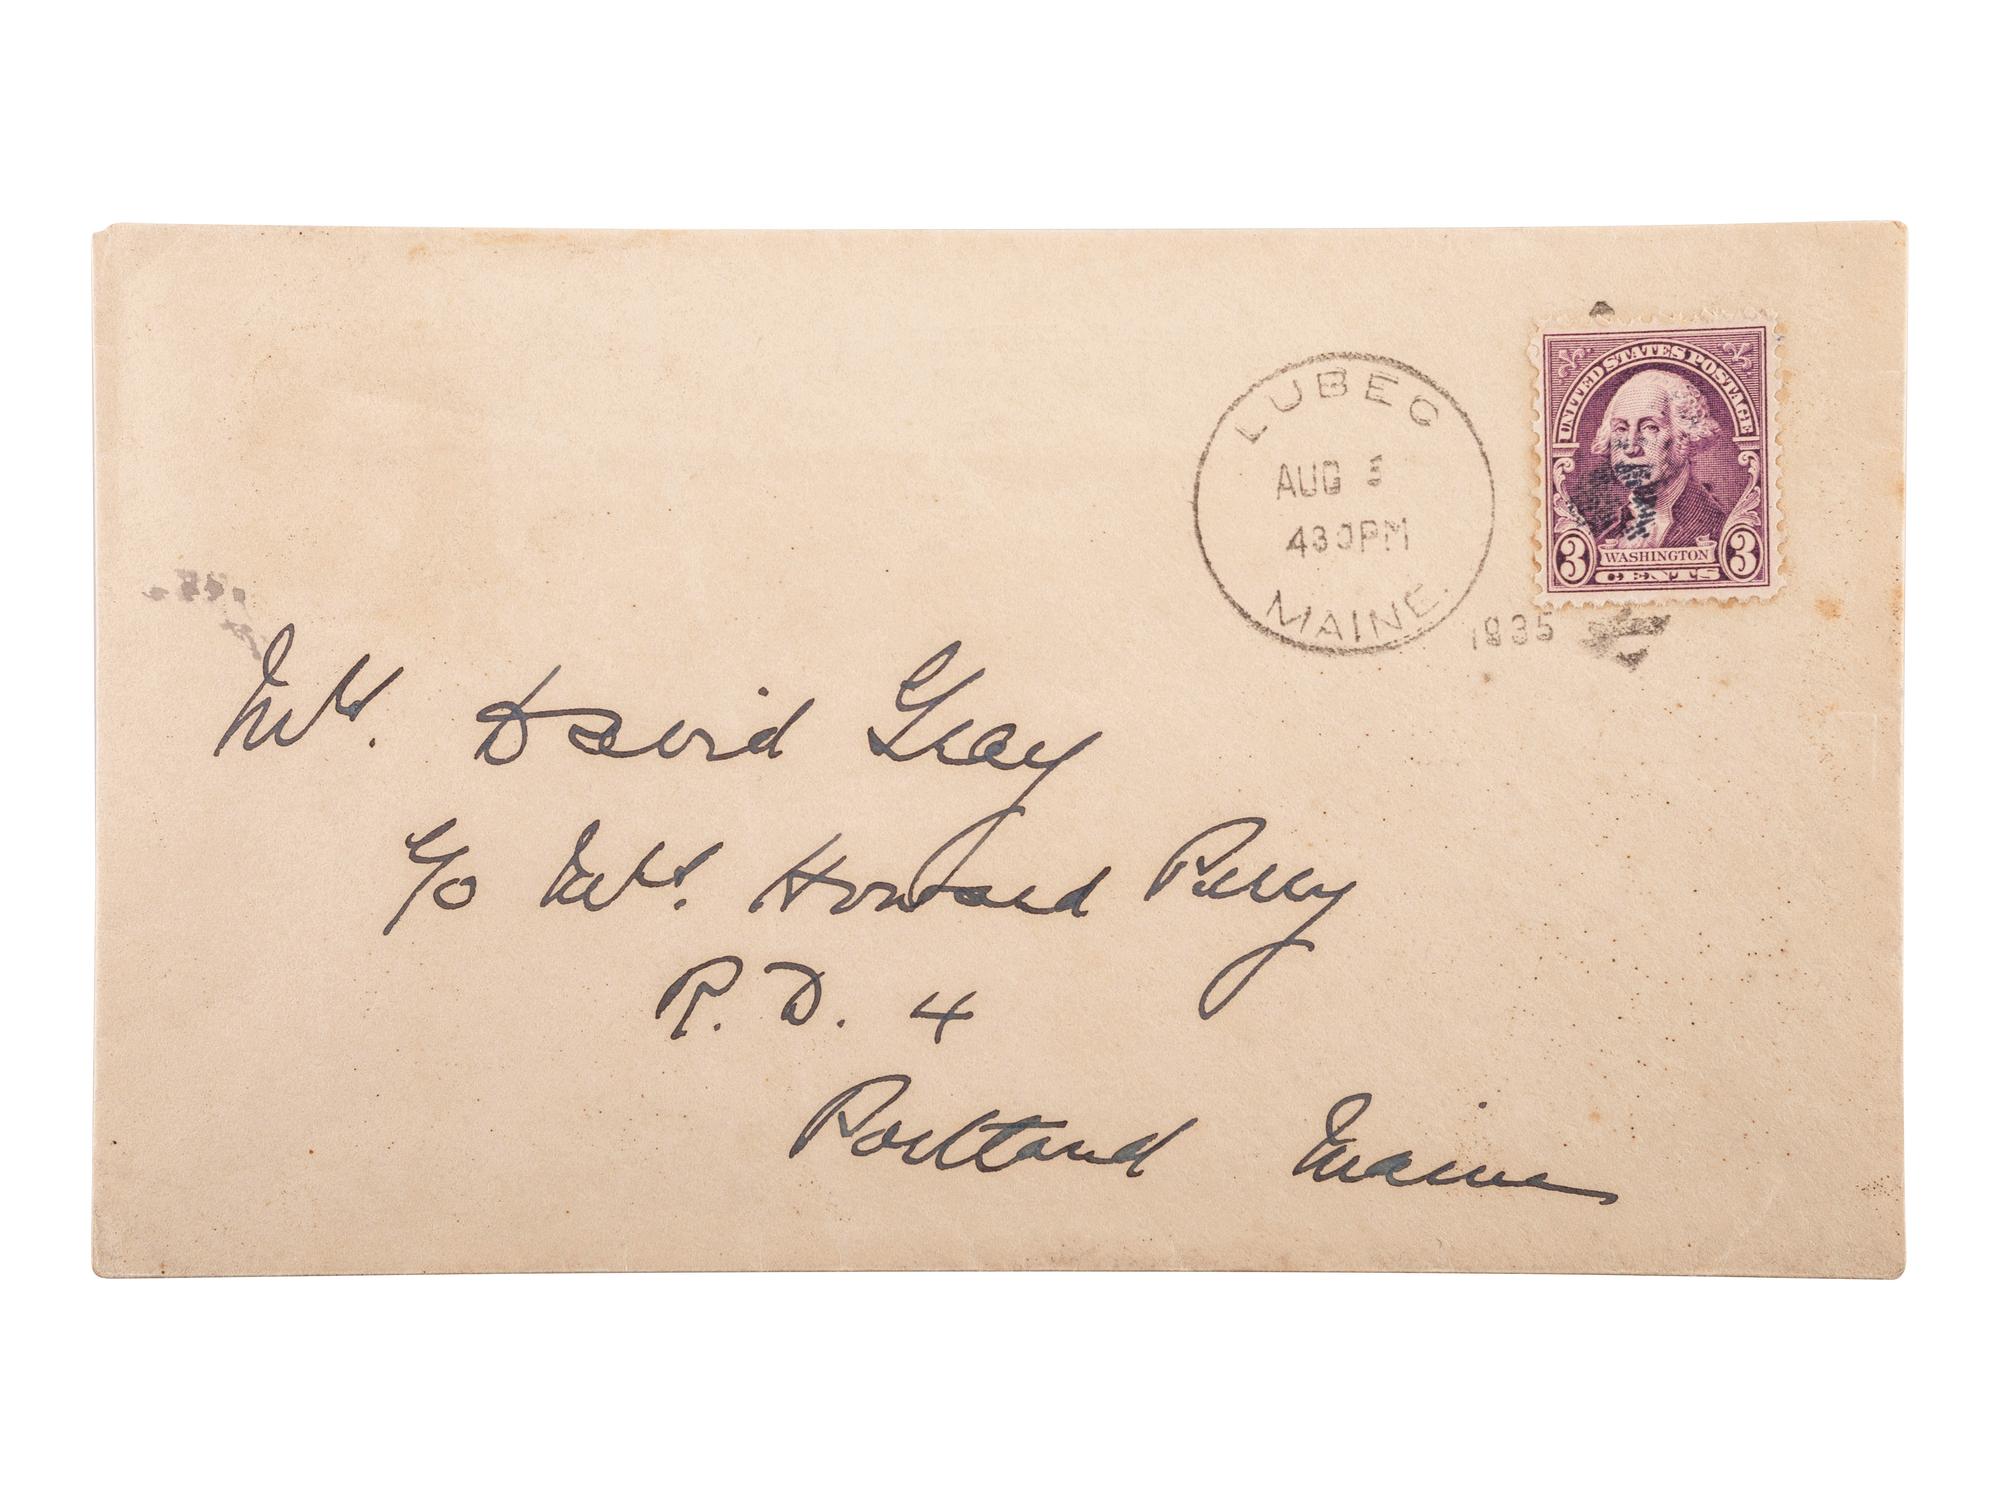 LUBEC
AUG
430PM
MAINE.
1935
UNITED STATES POSTAGE
3 WASHINGTON 3
CENTS
Mrs. David Gray
c/o Mrs. Howard Perry
R.D. 4
Portland Maine